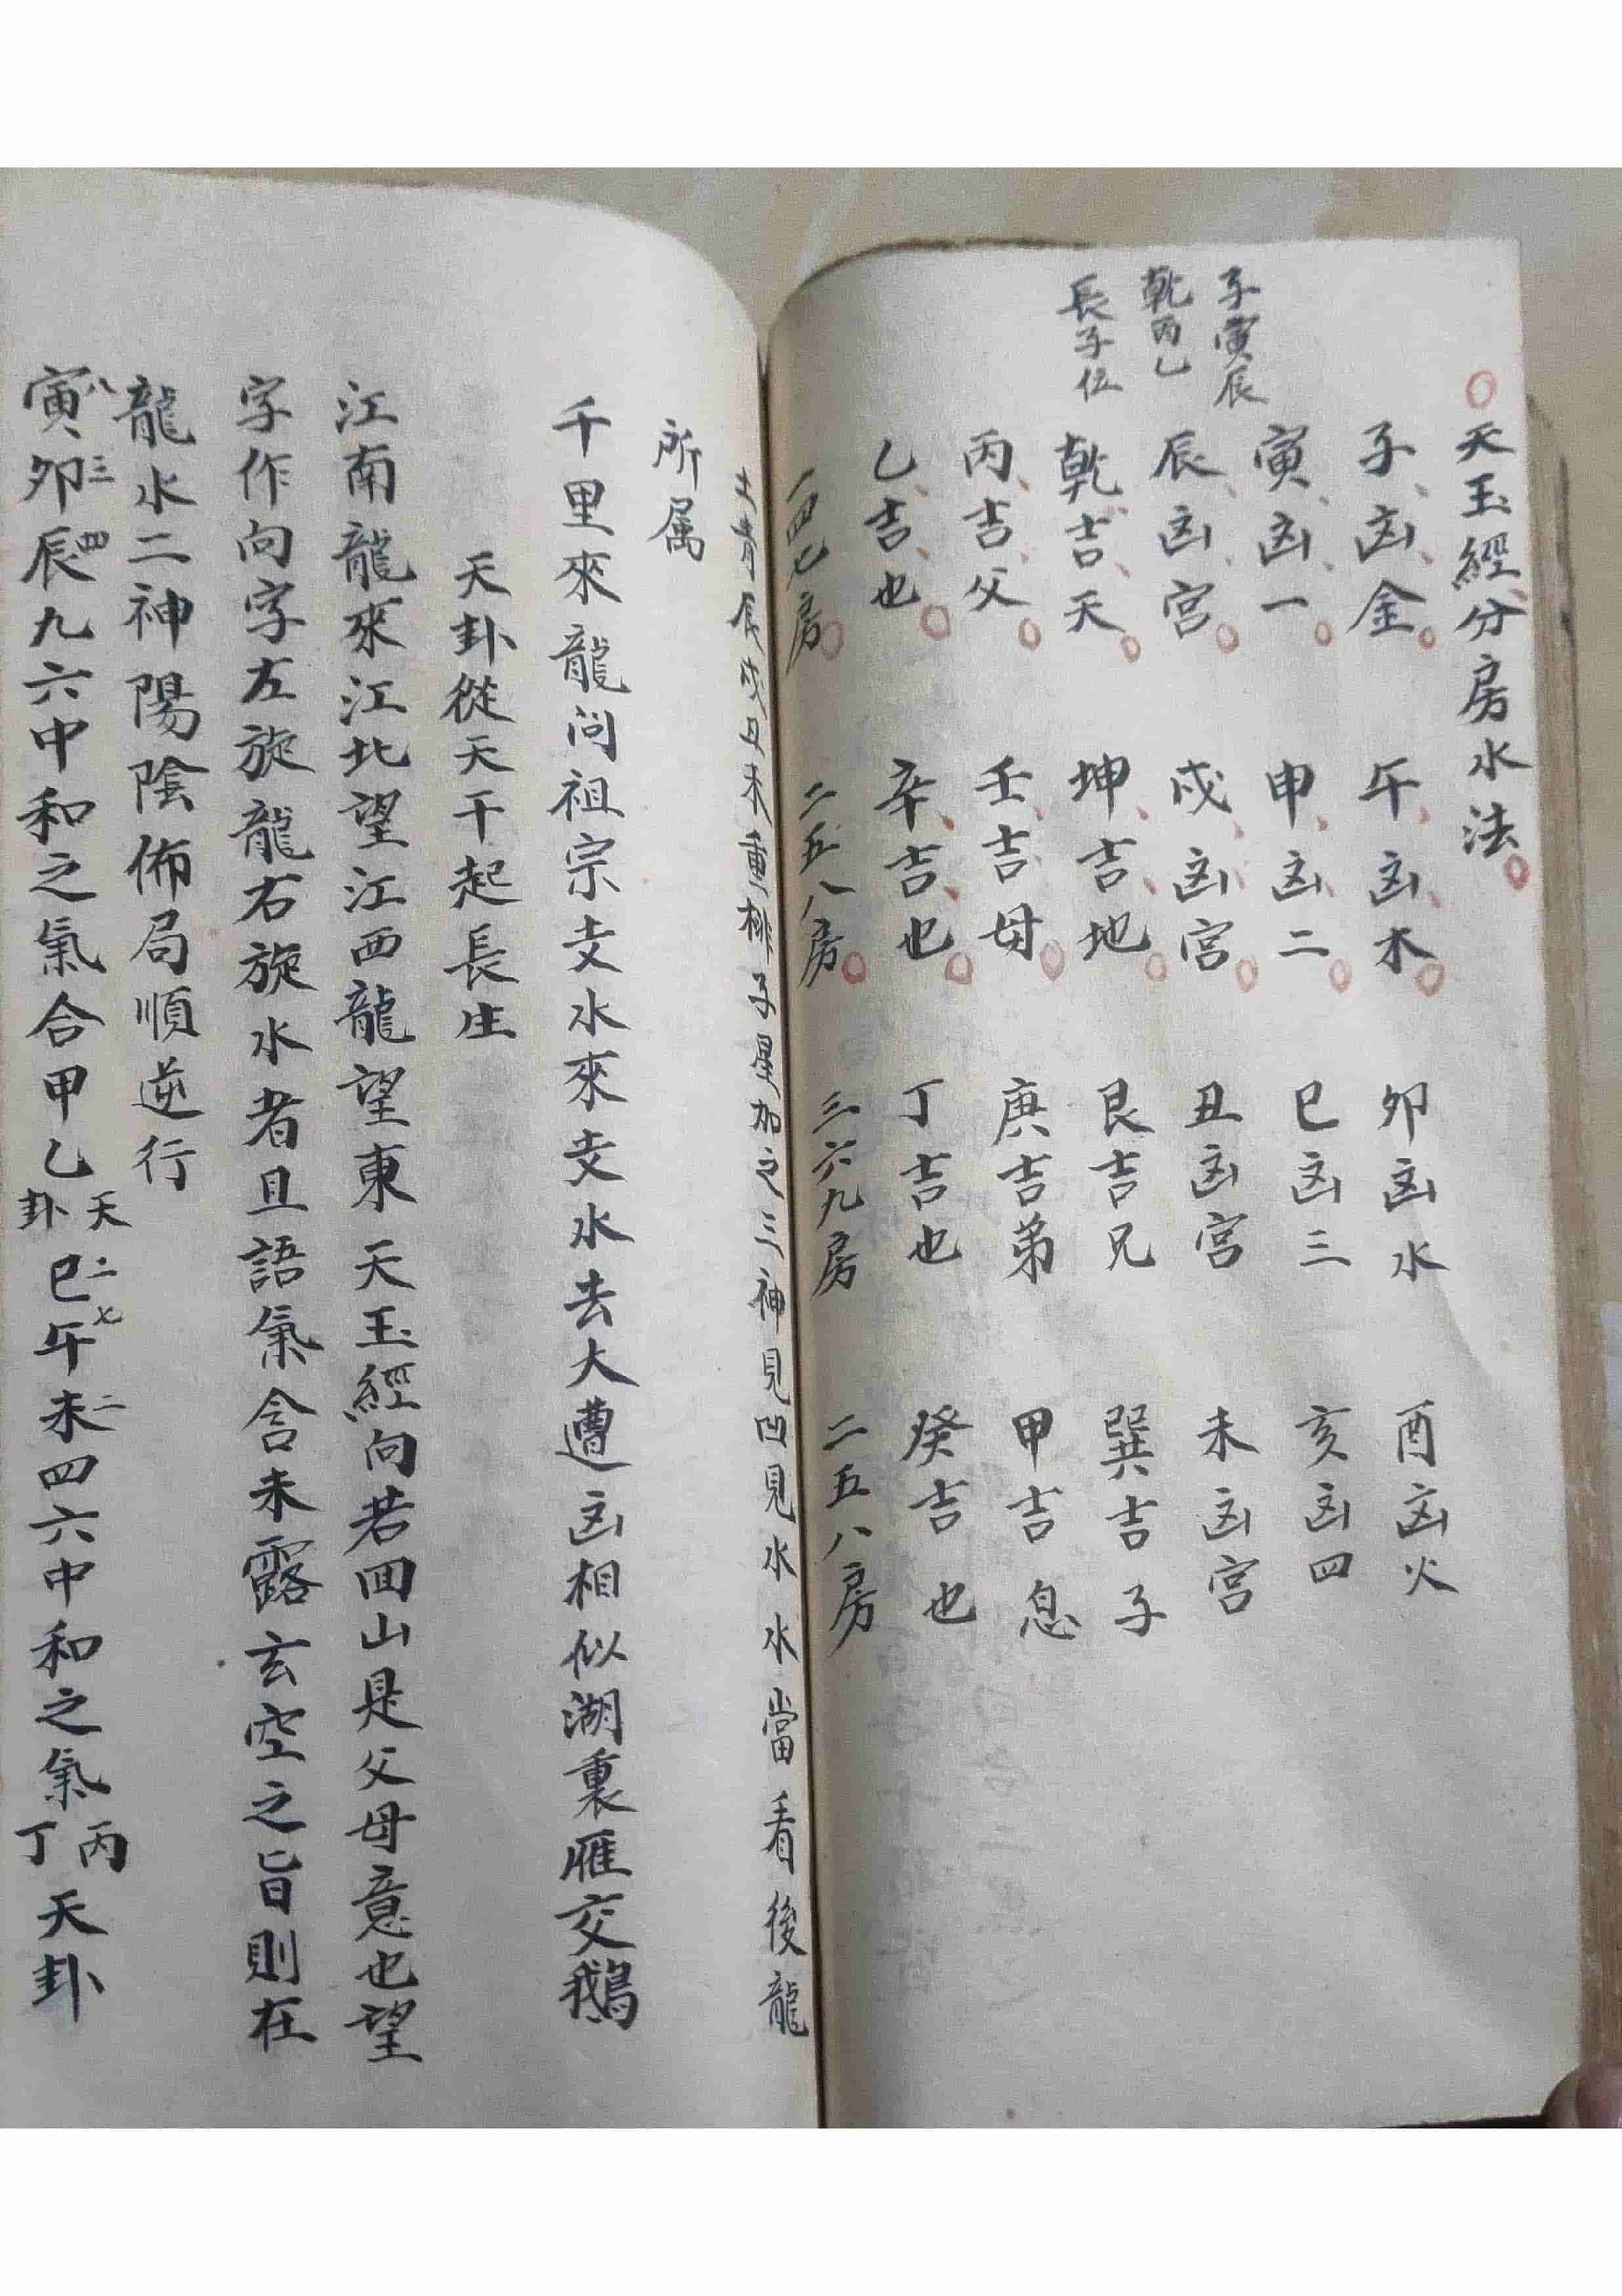 子寅辰
乾丙乙
長子位
天玉經分房水法
子凶金 午凶木 卯凶水 酉凶火
寅凶一 申凶二 巳凶三 亥凶四
辰凶宮 戌凶宮 丑凶宮 未凶宮
乾吉天 坤吉地 艮吉兄 巽吉子
丙吉父 壬吉母 庚吉弟 甲吉息
乙吉也 辛吉也 丁吉也 癸吉也
一四七房 二五八房 三六九房 二五八房
辰戌丑未重排子星加之三神見凹見水水當看後龍
所属
千里來龍问祖宗支水來支水去大遭凶相似湖裏雁交鵝
天卦從天干起長生
江南龍來江北望江西龍望東天玉經向若回山是父母意也望
字作向字左旋龍右旋水者且語氣含未露玄空之旨則在
龍水二神陽陰佈局順逆行
寅八卯三辰四九六中和之氣合甲乙天卦巳二午七未二四六中和之氣丙丁天卦